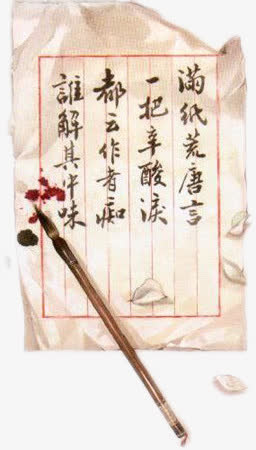 滿紙荒唐言
一把辛酸淚
都云作者痴
誰解其中味